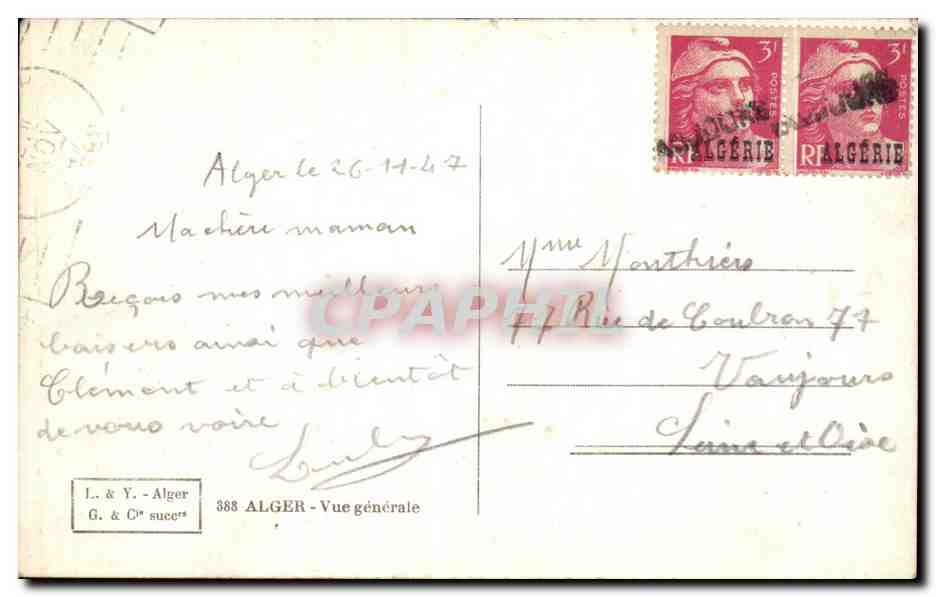 3F
POSTES
RF
ALGÉRIE
3F
POSTES
RF
ALGÉRIE
NOV
Alger le 26-11-47
Ma chère maman
Reçois mes meilleurs
baisers ainsi que
Clément et à bientôt
de vous voire
Mme Monthiers
77 Rue de Coubron 77
Vaujours
Seine et Oise
CPAPHIL
L. & Y. - Alger
G. & Cie succrs
388 ALGER - Vue générale